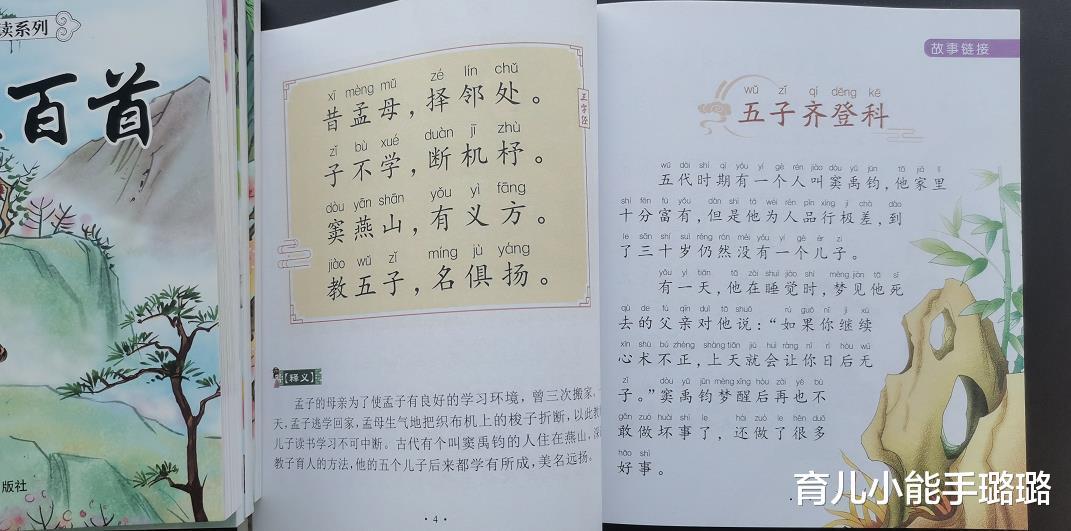 读系列
百首
版社
xī mèng mǔ zé lín chǔ
昔孟母，择邻处。
zǐ bù xué duàn jī zhù
子不学，断机杼。
dòu yān shān yǒu yì fāng
窦燕山，有义方。
jiào wǔ zǐ míng jù yáng
教五子，名俱扬。
三字经
【释义】
孟子的母亲为了使孟子有良好的学习环境，曾三次搬家。
天，孟子逃学回家，孟母生气地把织布机上的梭子折断，以此教
儿子读书学习不可中断。古代有个叫窦禹钧的人住在燕山，深
教子育人的方法，他的五个儿子后来都学有所成，美名远扬。
·4·
故事链接
wǔ zǐ qí dēng kē
五子齐登科
wǔ dài shí qī yǒu yí gè rén jiào dòu yǔ jūn tā jiā lǐ
五代时期有一个人叫窦禹钧，他家里
shí fēn fù yǒu dàn shì tā wéi rén pǐn xíng jí chà dào
十分富有，但是他为人品行极差，到
le sān shí suì réng rán méi yǒu yí gè ér zi
了三十岁仍然没有一个儿子。
yǒu yì tiān tā zài shuì jiào shí mèng jiàn tā sǐ
有一天，他在睡觉时，梦见他死
qù de fù qīn duì tā shuō rú guǒ nǐ jì xù
去的父亲对他说：“如果你继续
xīn shù bú zhèng shàng tiān jiù huì ràng nǐ rì hòu wú
心术不正，上天就会让你日后无
zǐ dòu yǔ jūn mèng xǐng hòu zài yě bù
子。”窦禹钧梦醒后再也不
gǎn zuò huài shì le hái zuò le hěn duō
敢做坏事了，还做了很多
hǎo shì
好事。
育儿小能手璐璐